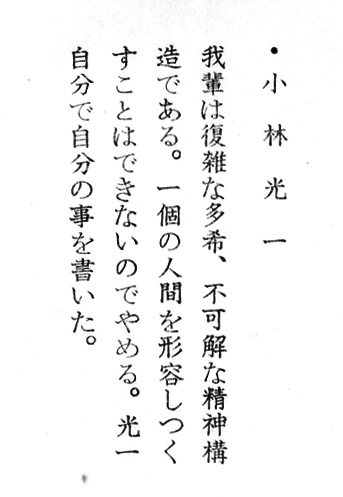 ・小林光一
我輩は復雑な多希、不可解な精神構
造である。一個の人間を形容しつく
すことはできないのでやめる。光一
自分で自分の事を書いた。